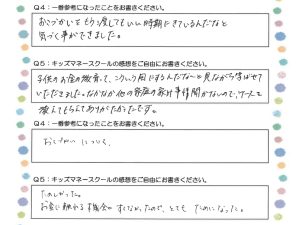 Q4：一番参考になったことをお書きください。
おこづかいをもう渡してもいい時期にきているんだなと
気づく事ができました。
Q5：キッズマネースクールの感想をご自由にお書きください。
子供のお金の教育って、こういう風にするんだな～と見ながら学ばせて
いただきました。なかなか他の家庭の家計事情聞かないので、ワークを
教えてもらえてありがたかったです。
Q4：一番参考になったことをお書きください。
おこづかいについて。
Q5：キッズマネースクールの感想をご自由にお書きください。
たのしかった。
お金に触れる機会がすくなかったので、とてもためになった。